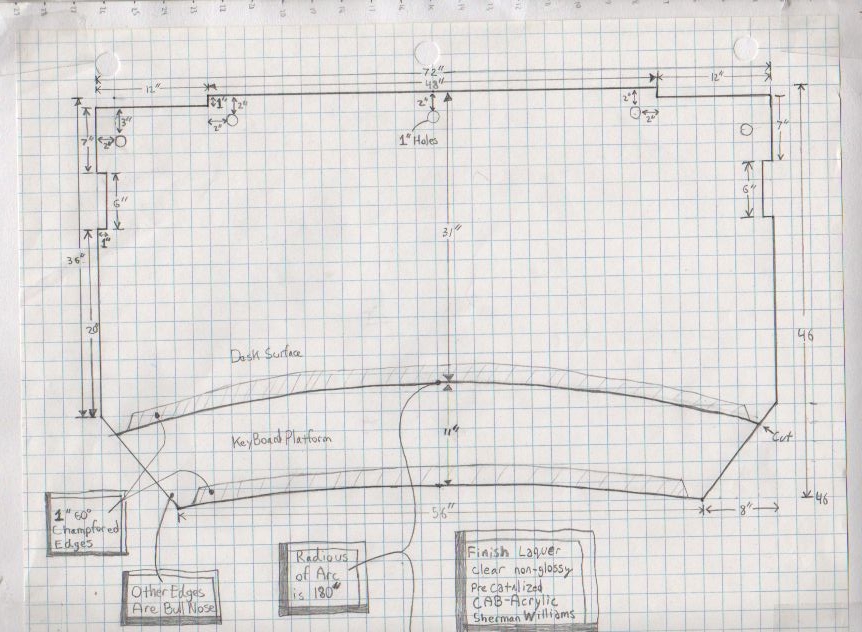 72"
12"
48"
12"
1"
2"
2"
2"
2"
2"
3"
2"
7"
7"
1" Holes
6"
6"
1"
31"
36"
20"
46
Desk Surface
KeyBoard Platform
11"
Cut
46
56"
8"
K
1" 60°
Champfored
Edges
Other Edges
Are Bull Nose
Radious
of Arc
is 180"
Finish Laquer
clear non-glossy
Pre Catalized
CAB-Acrylic
Sherman Williams